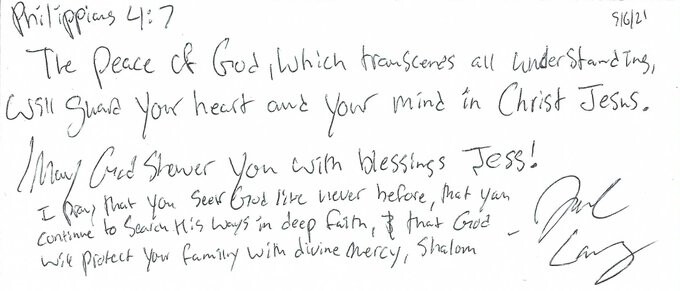 Philippians 4:7
9/6/21
The peace of God, which transcends all understanding,
will guard your heart and your mind in Christ Jesus.
May God shower you with blessings Jess!
I pray that you seek God like never before, that you
continue to search His ways in deep faith, & that God
will protect your family with divine mercy, Shalom -